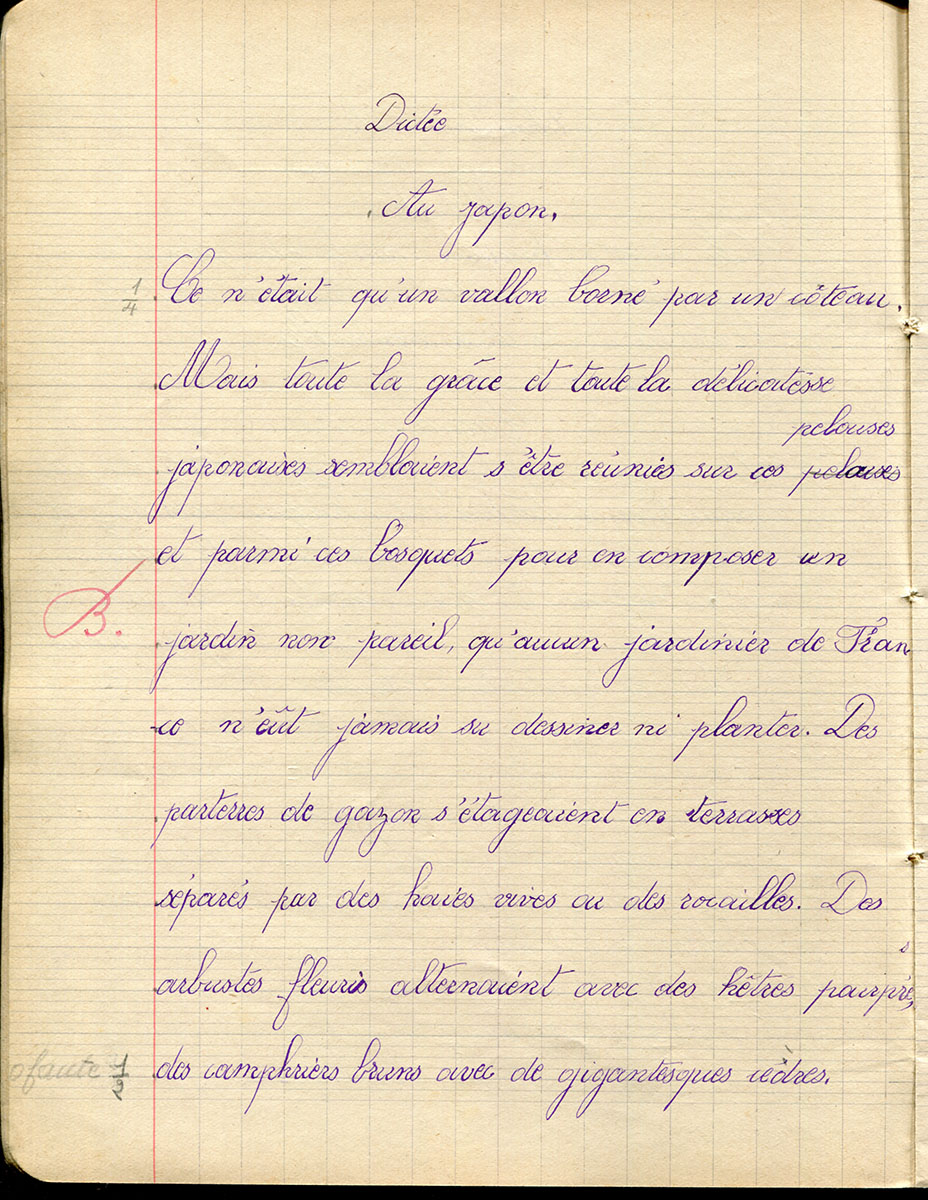 Dictée
Au japon.
1/4
Ce n'était qu'un vallon borné par un côteau.
Mais toute la grâce et toute la délicatesse
pelouses
japonaises semblaient s'être réunies sur ces pelouses
et parmi ces bosquets pour en composer un
B.
jardin non pareil, qu'aucun jardinier de Fran
ce n'eût jamais su dessiner ni planter. Des
parterres de gazon s'étageaient en terrasses
séparés par des haies vives ou des rocailles. Des
s
arbustes fleuris alternaient avec des hêtres pourpre,
des camphriers bruns avec de gigantesques cèdres.
0 faute 1/2